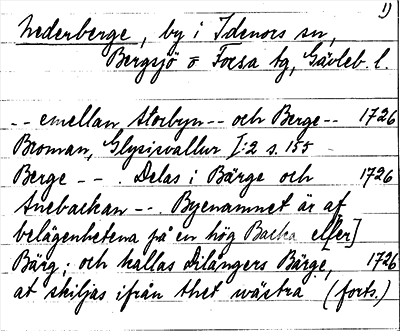 1)
Nederberge, by i Idenors sn,
Bergsjö o Forsa tg, Gävleb. l.
-- emellan Storbyn -- och Berge -- 1726
Broman, Glysisvallur I:2 s. 155
Berge -- . Delas i Bärge och 1726
Anebackan -- . Byenamnet är af
belägenhetena på en hög Backa ell[er]
Bärg; och kallas Dilångers Bärge, 1726
at skiljas ifrån thet wästra (forts.)